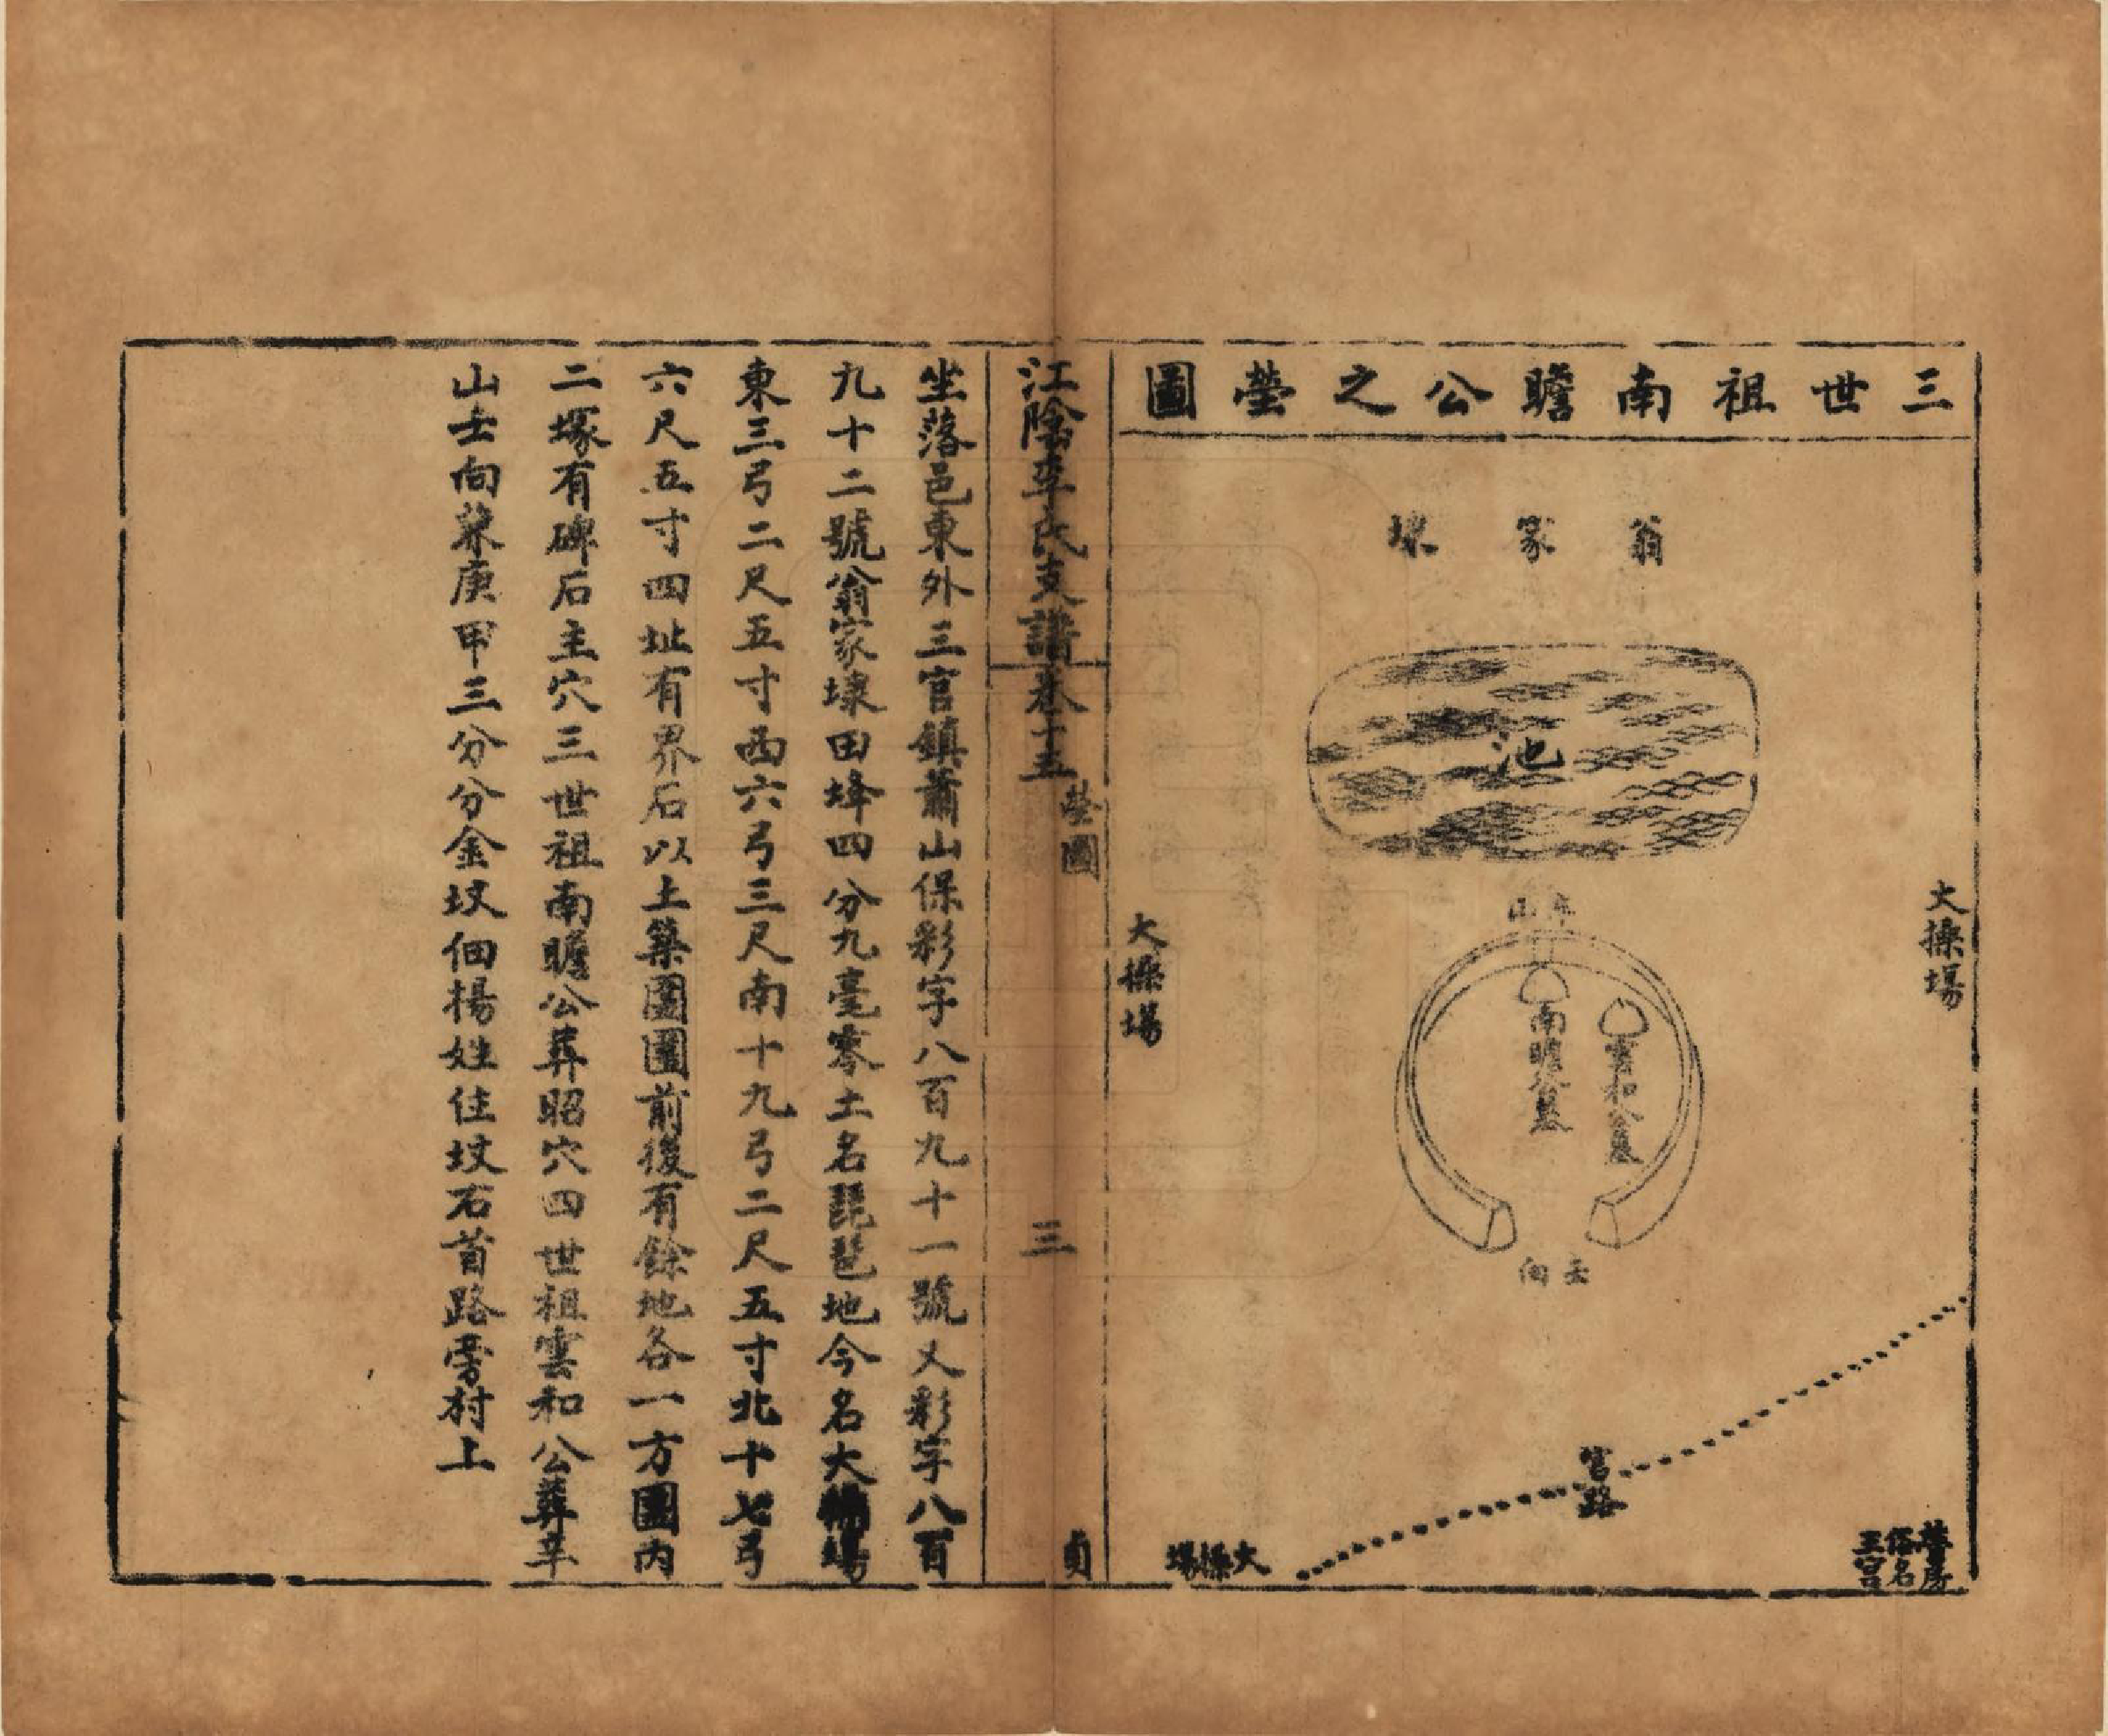 三世祖南瞻公之塋圖
翁家埭
池
大操場
大操場
山
南瞻公墓
雲和公墓
壬向
官路
大操場
俗名
三官
江陰李氏支譜卷十五 塋圖 三 貞
坐落邑東外三官鎮蕭山保彩字八百九十一號又彩字八百
九十二號翁家埭田埄四分九毫零土名琵琶地今名大操場
東三弓二尺五寸西六弓三尺南十九弓二尺五寸北十七弓
六尺五寸四址有界石以土築圍圍前後有餘地各一方圍內
二塚有碑石主穴三世祖南瞻公葬昭穴四世祖雲和公葬
山壬向兼庚甲三分分金坟佃楊姓住坟右首路旁村上